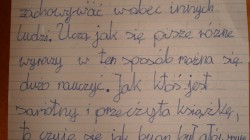 zachowywać wobec innych
ludzi. Uczą jak się pisze różne
wyrazy w ten sposób można się
dużo nauczyć. Jak ktoś jest
samotny i przeczyta książkę,
to czuje się jak